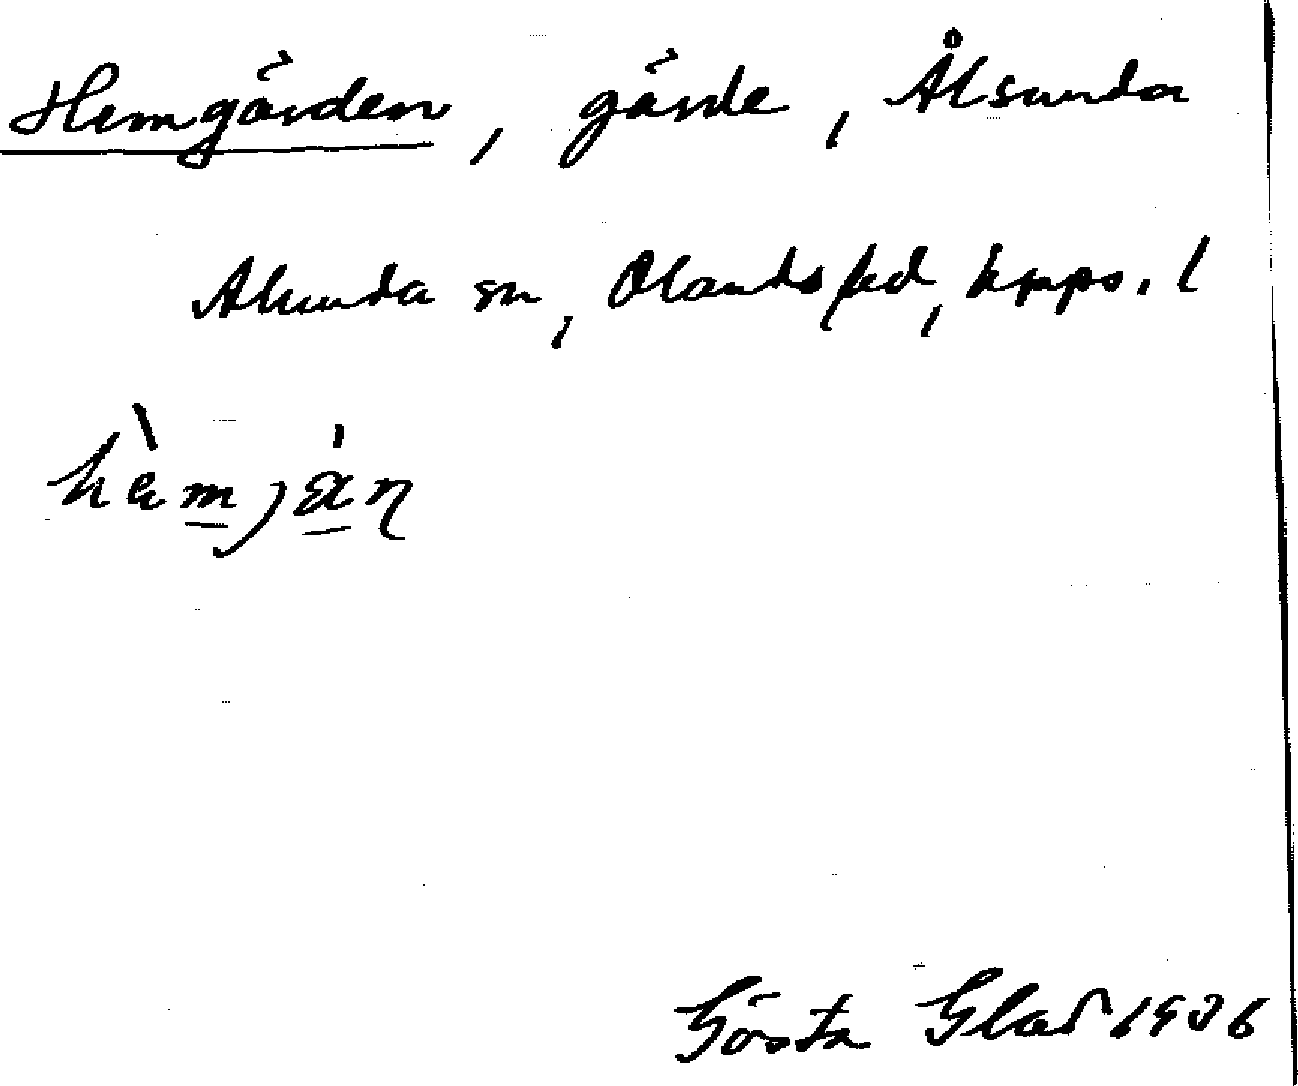 Hemgärden, gärde, Ålsunda
Alunda sn, Olands hd, Upps. l
hὲmjæ̀ɳ
Gösta Glad 1936